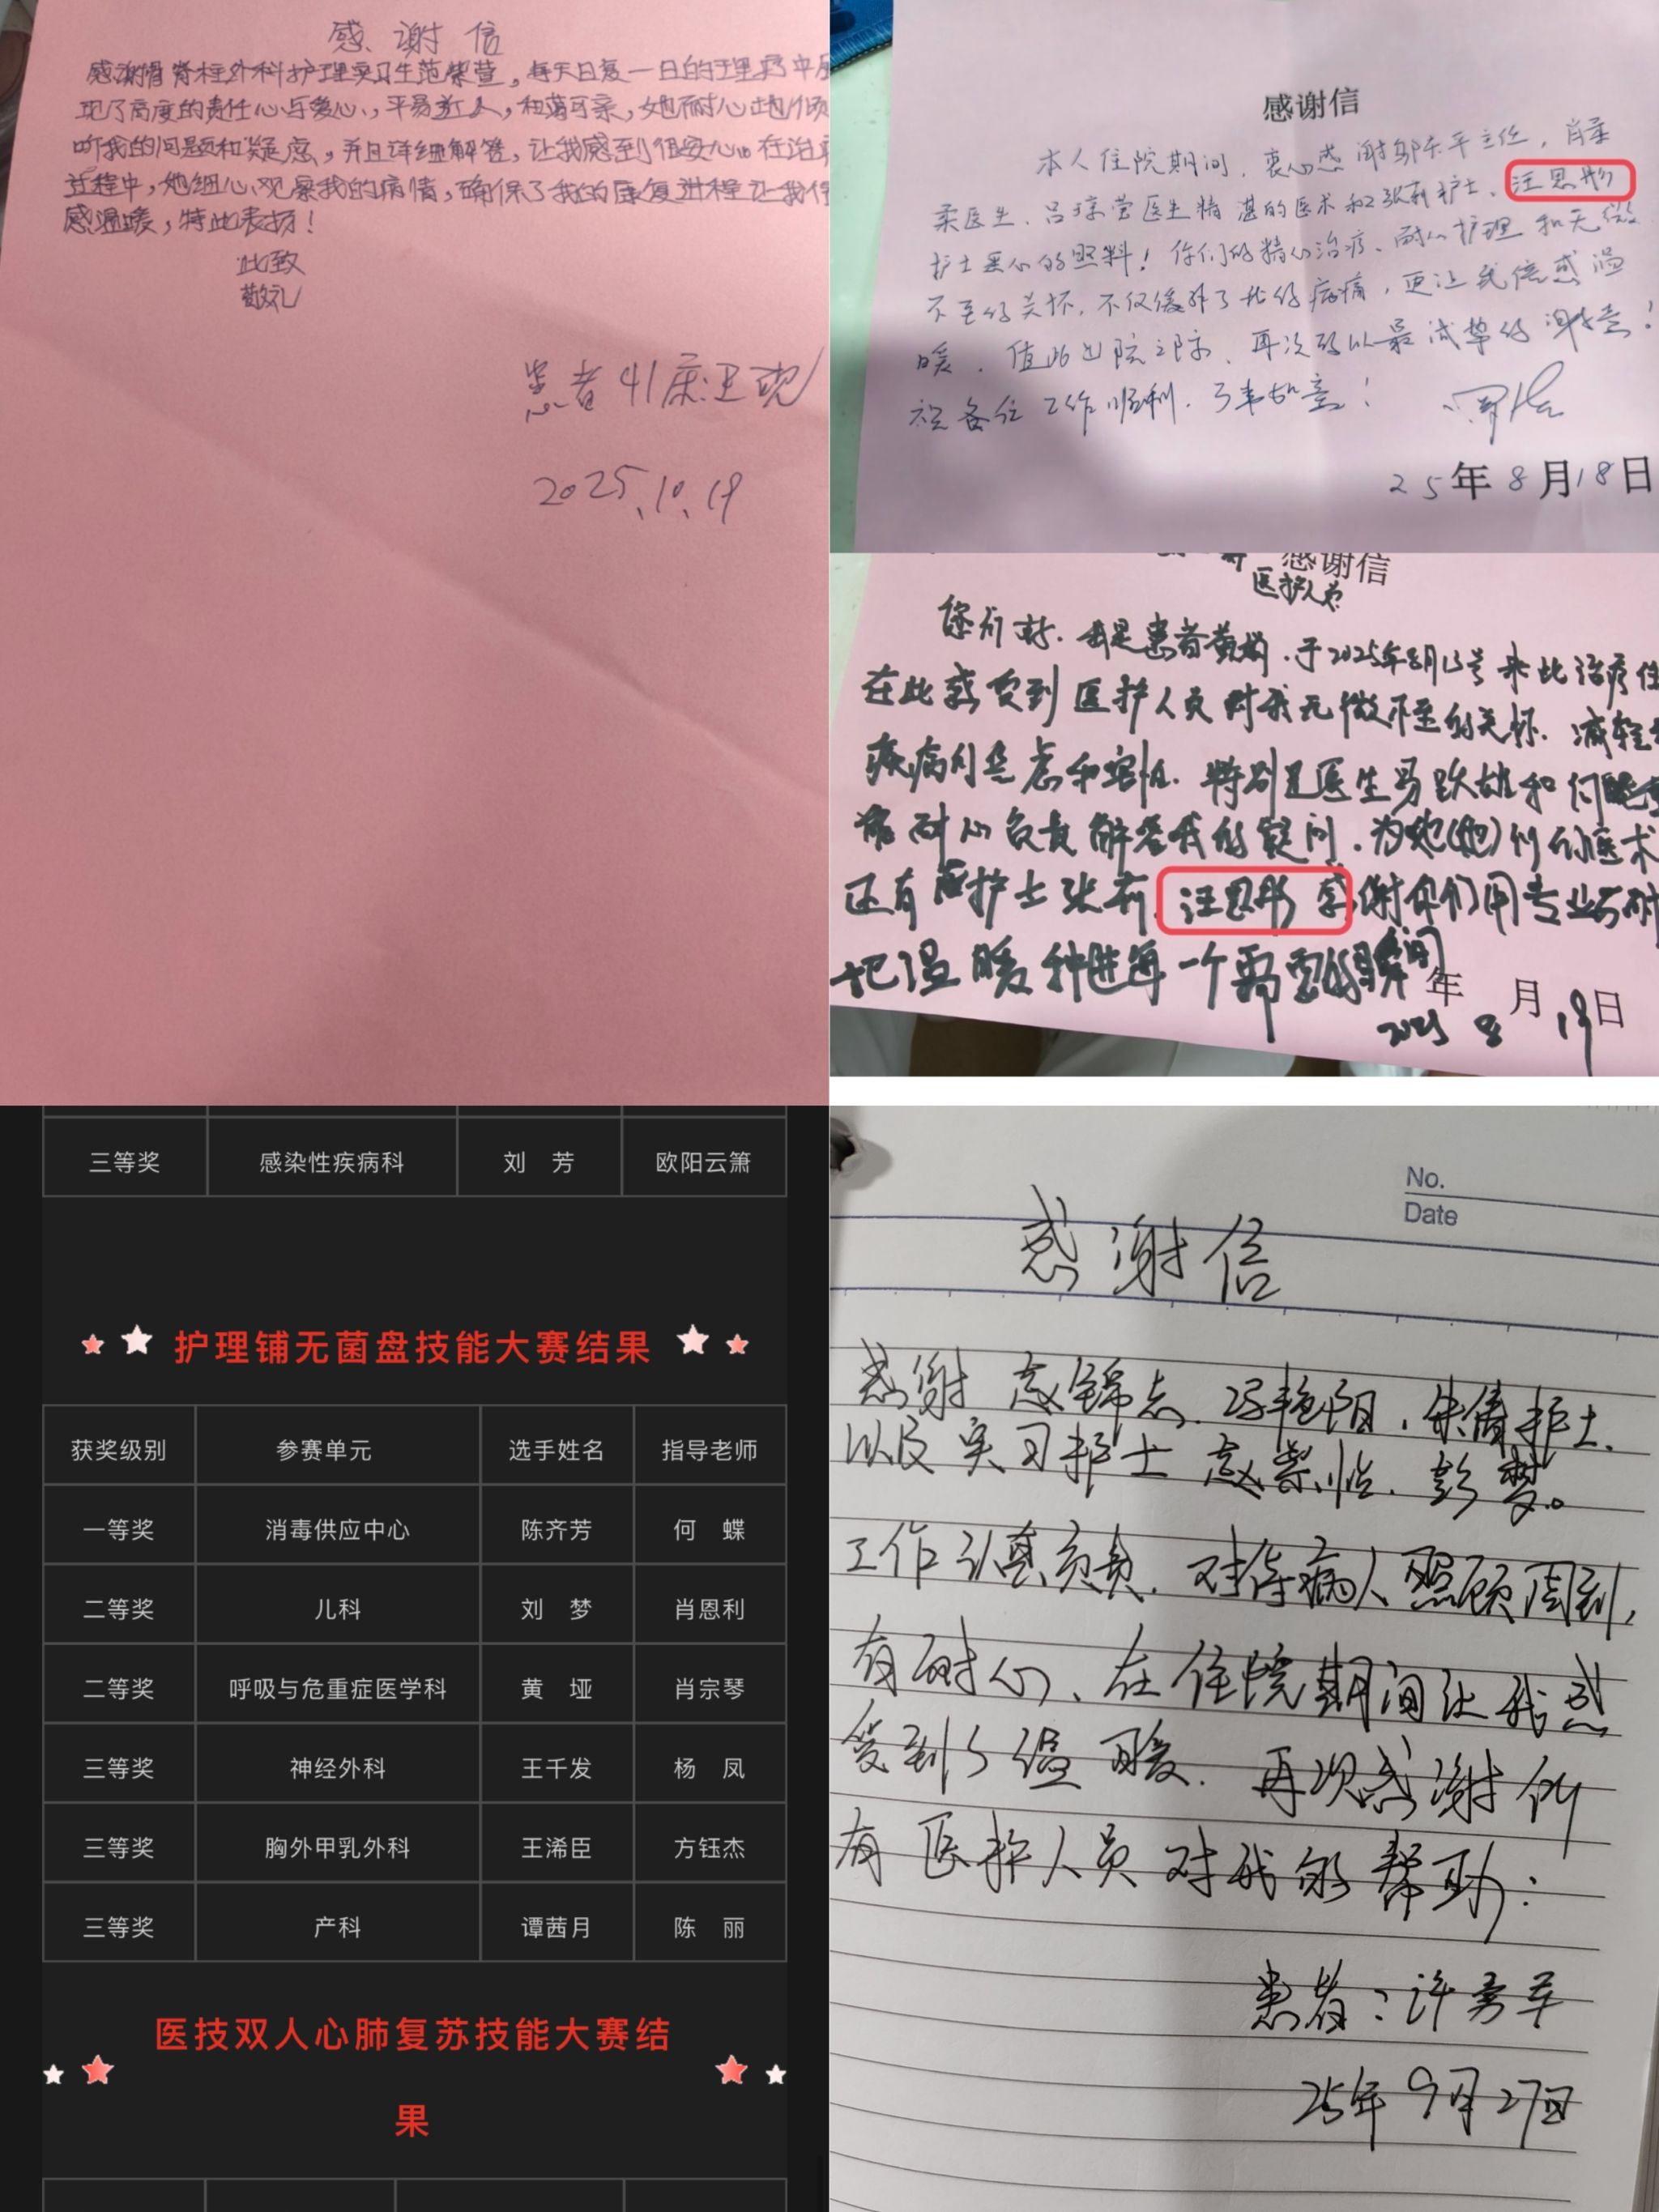 感谢信
感谢脊柱外科护理实习生范紫萱,每天日复一日的理疗中
现了高度的责任心与爱心,平易近人,和蔼可亲,她耐心地倾
听我的问题和疑虑,并且详细解答,让我感到很安心。在治
过程中,她细心观察我的病情,确保了我的康复进程让我倍
感温暖,特此表扬!
此致
敬礼
患者41床:王
2025.10.19
感谢信
本人住院期间,衷心感谢邹乐平主任,肖柔
柔医生、吕琼莹医生精湛的医术和张莉护士、汪思彤
护士悉心的照料!你们的精心治疗、耐心护理和无微
不至的关怀,不仅缓外了我的病痛,更让我倍感温
暖。值此出院之际,再次致以最诚挚的谢意!
祝各位工作顺利,万事如意!
25年8月18日
感谢信
医护人员
您们好,我是患者黄,于2025年8月13号来此治疗住
在此感受到医护人员对我无微不至的关怀,减轻
疾病的焦虑和害怕,特别是医生易跃雄和何
耐心负责解答我的疑问,为她(他)们的医术
还有医护士张莉、汪思彤 感谢你们用专业与耐
把温暖种进每一个需要的瞬间
年 月 日
2025 8 19
三等奖 感染性疾病科 刘 芳 欧阳云箫
护理铺无菌盘技能大赛结果
获奖级别 参赛单元 选手姓名 指导老师
一等奖 消毒供应中心 陈齐芳 何 蝶
二等奖 儿科 刘 梦 肖恩利
二等奖 呼吸与危重症医学科 黄 垭 肖宗琴
三等奖 神经外科 王千发 杨 凤
三等奖 胸外甲乳外科 王浠臣 方钰杰
三等奖 产科 谭茜月 陈 丽
医技双人心肺复苏技能大赛结
果
No.
Date
感谢信
感谢 赵锦志、冯艳阳、朱倩护士、
以及实习护士 赵紫怡、彭梦。
工作认真负责,对待病人照顾周到,
有耐心、在住院期间让我感
受到了温暖。再次感谢所
有医护人员对我的帮助:
患者:许芳军
25年9月27日